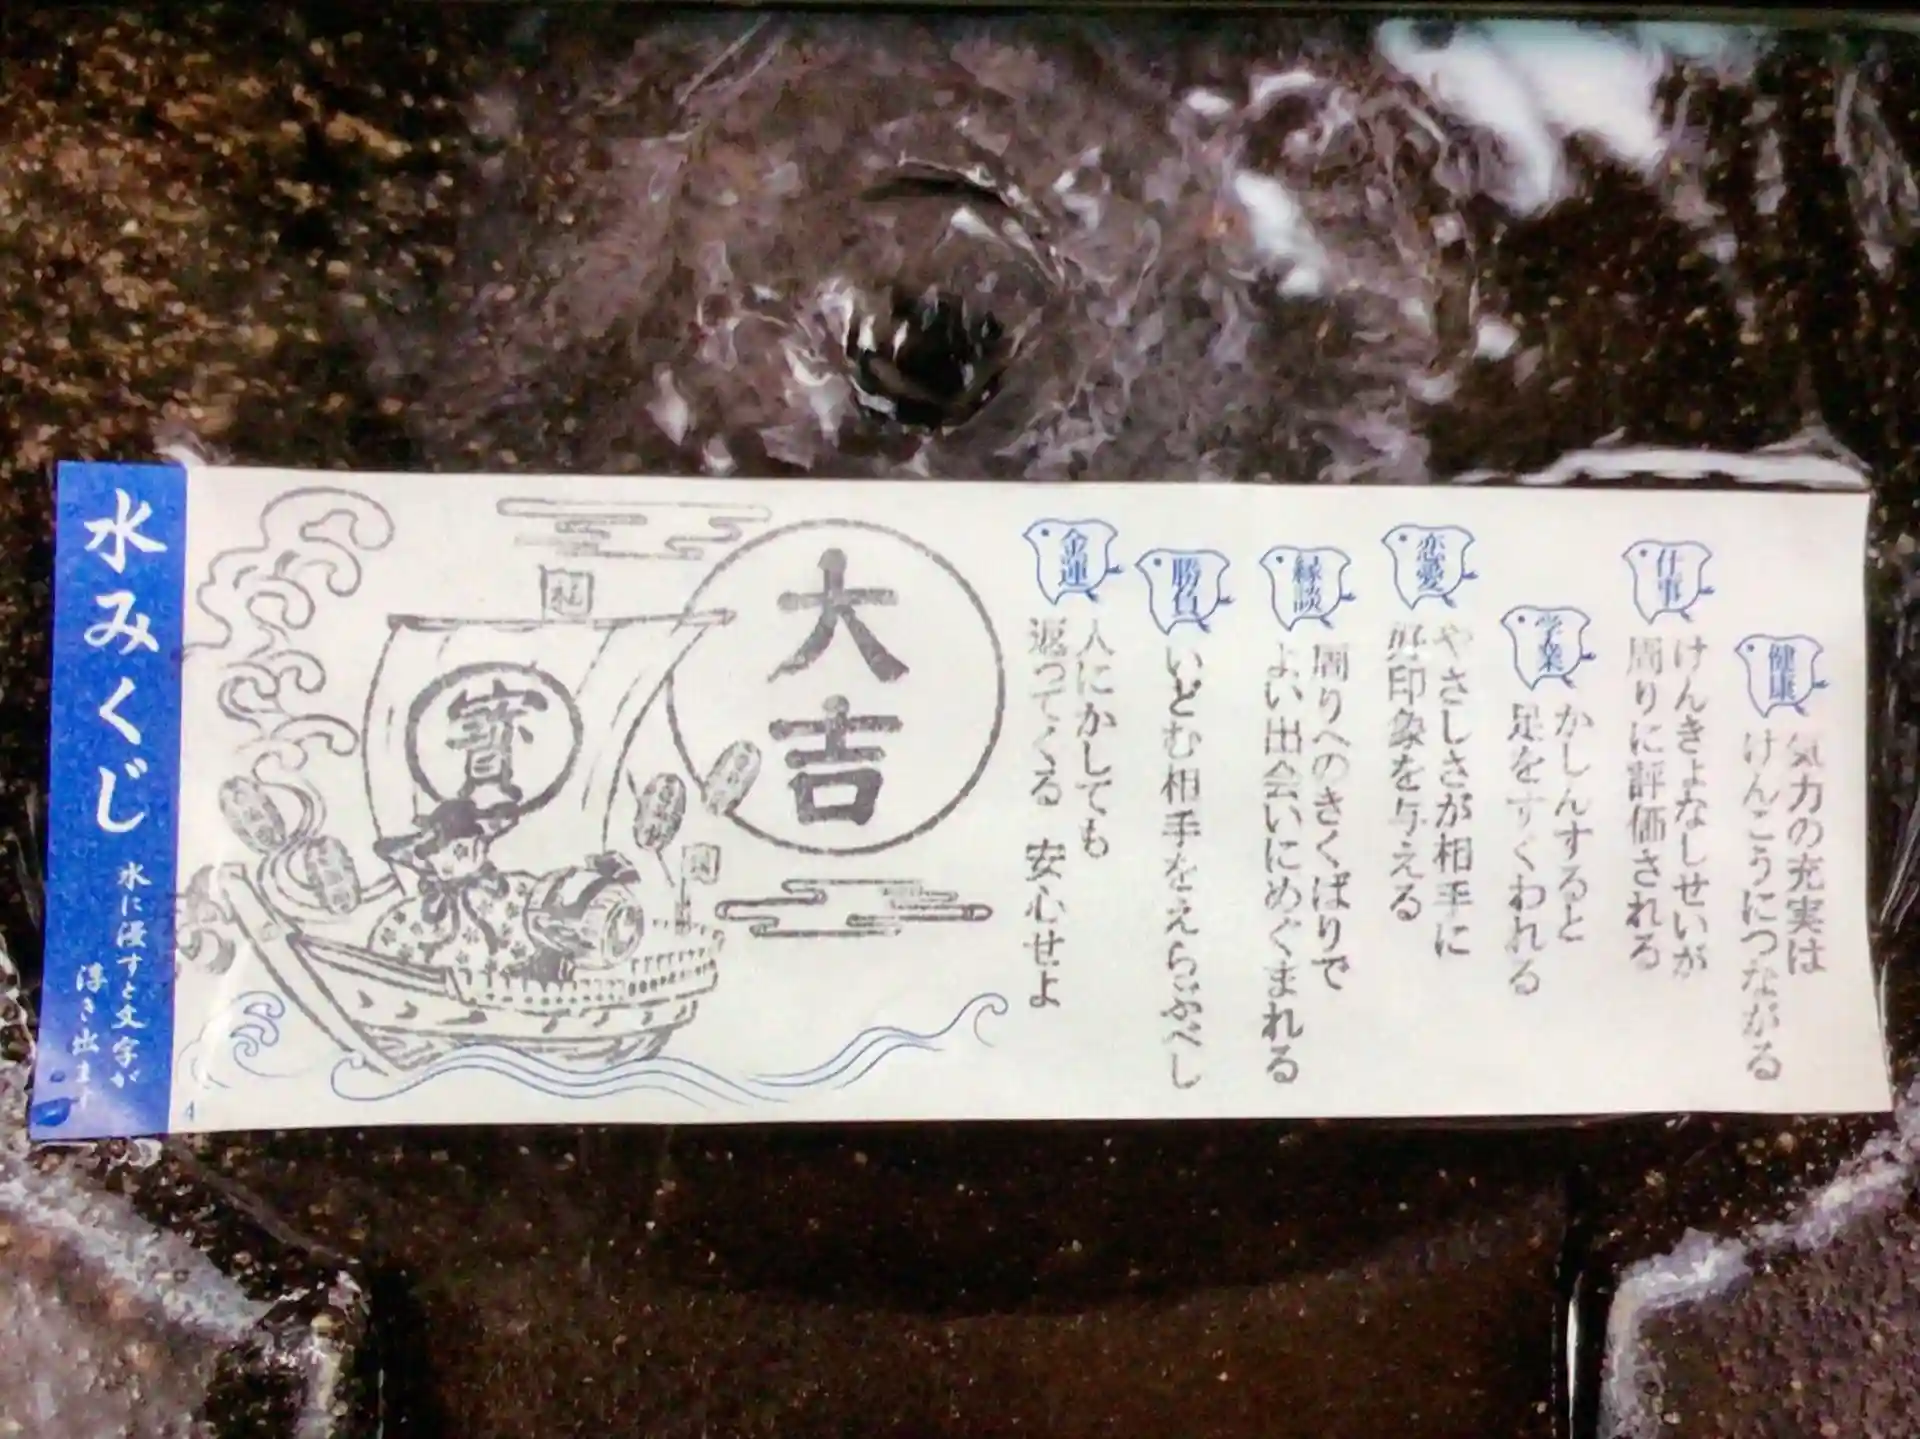 健康
気力の充実は
けんこうにつながる
仕事
けんきょなしせいが
周りに評価される
学業
かしんすると
足をすくわれる
恋愛
やさしさが相手に
好印象を与える
縁談
周りへのきくばりで
よい出会いにめぐまれる
勝負
いどむ相手をえらぶべし
金運
人にかしても
返ってくる 安心せよ
大吉
福
寶
水みくじ
水に浸すと文字が
浮き出ます
4